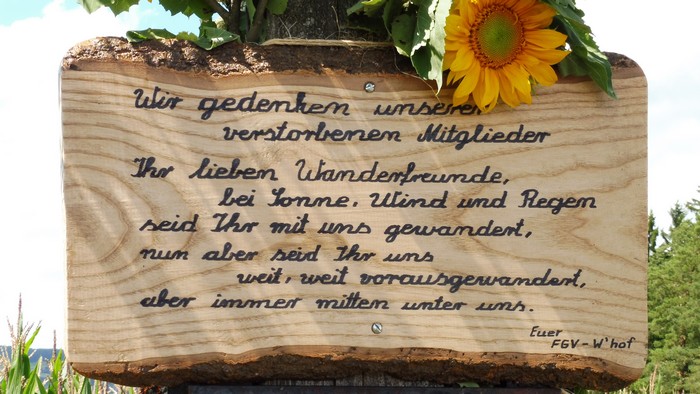 Wir gedenken unserer
verstorbenen Mitglieder
Ihr lieben Wanderfreunde,
bei Sonne, Wind und Regen
seid Ihr mit uns gewandert,
nun aber seid Ihr uns
weit, weit vorausgewandert,
aber immer mitten unter uns.
Euer
FGV - W'hof